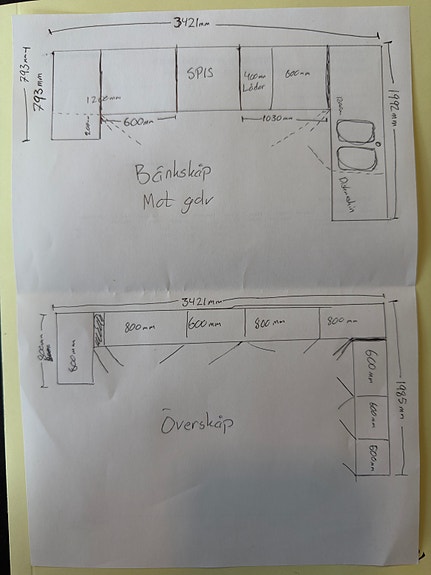 3421mm
793mm
793mm
SPIS
400mm
Lådor
600mm
1992mm
600mm
1030mm
Bänkskåp
Mot golv
3421mm
800mm
800mm
800mm
600mm
800mm
800mm
600mm
600mm
500mm
1985mm
Överskåp